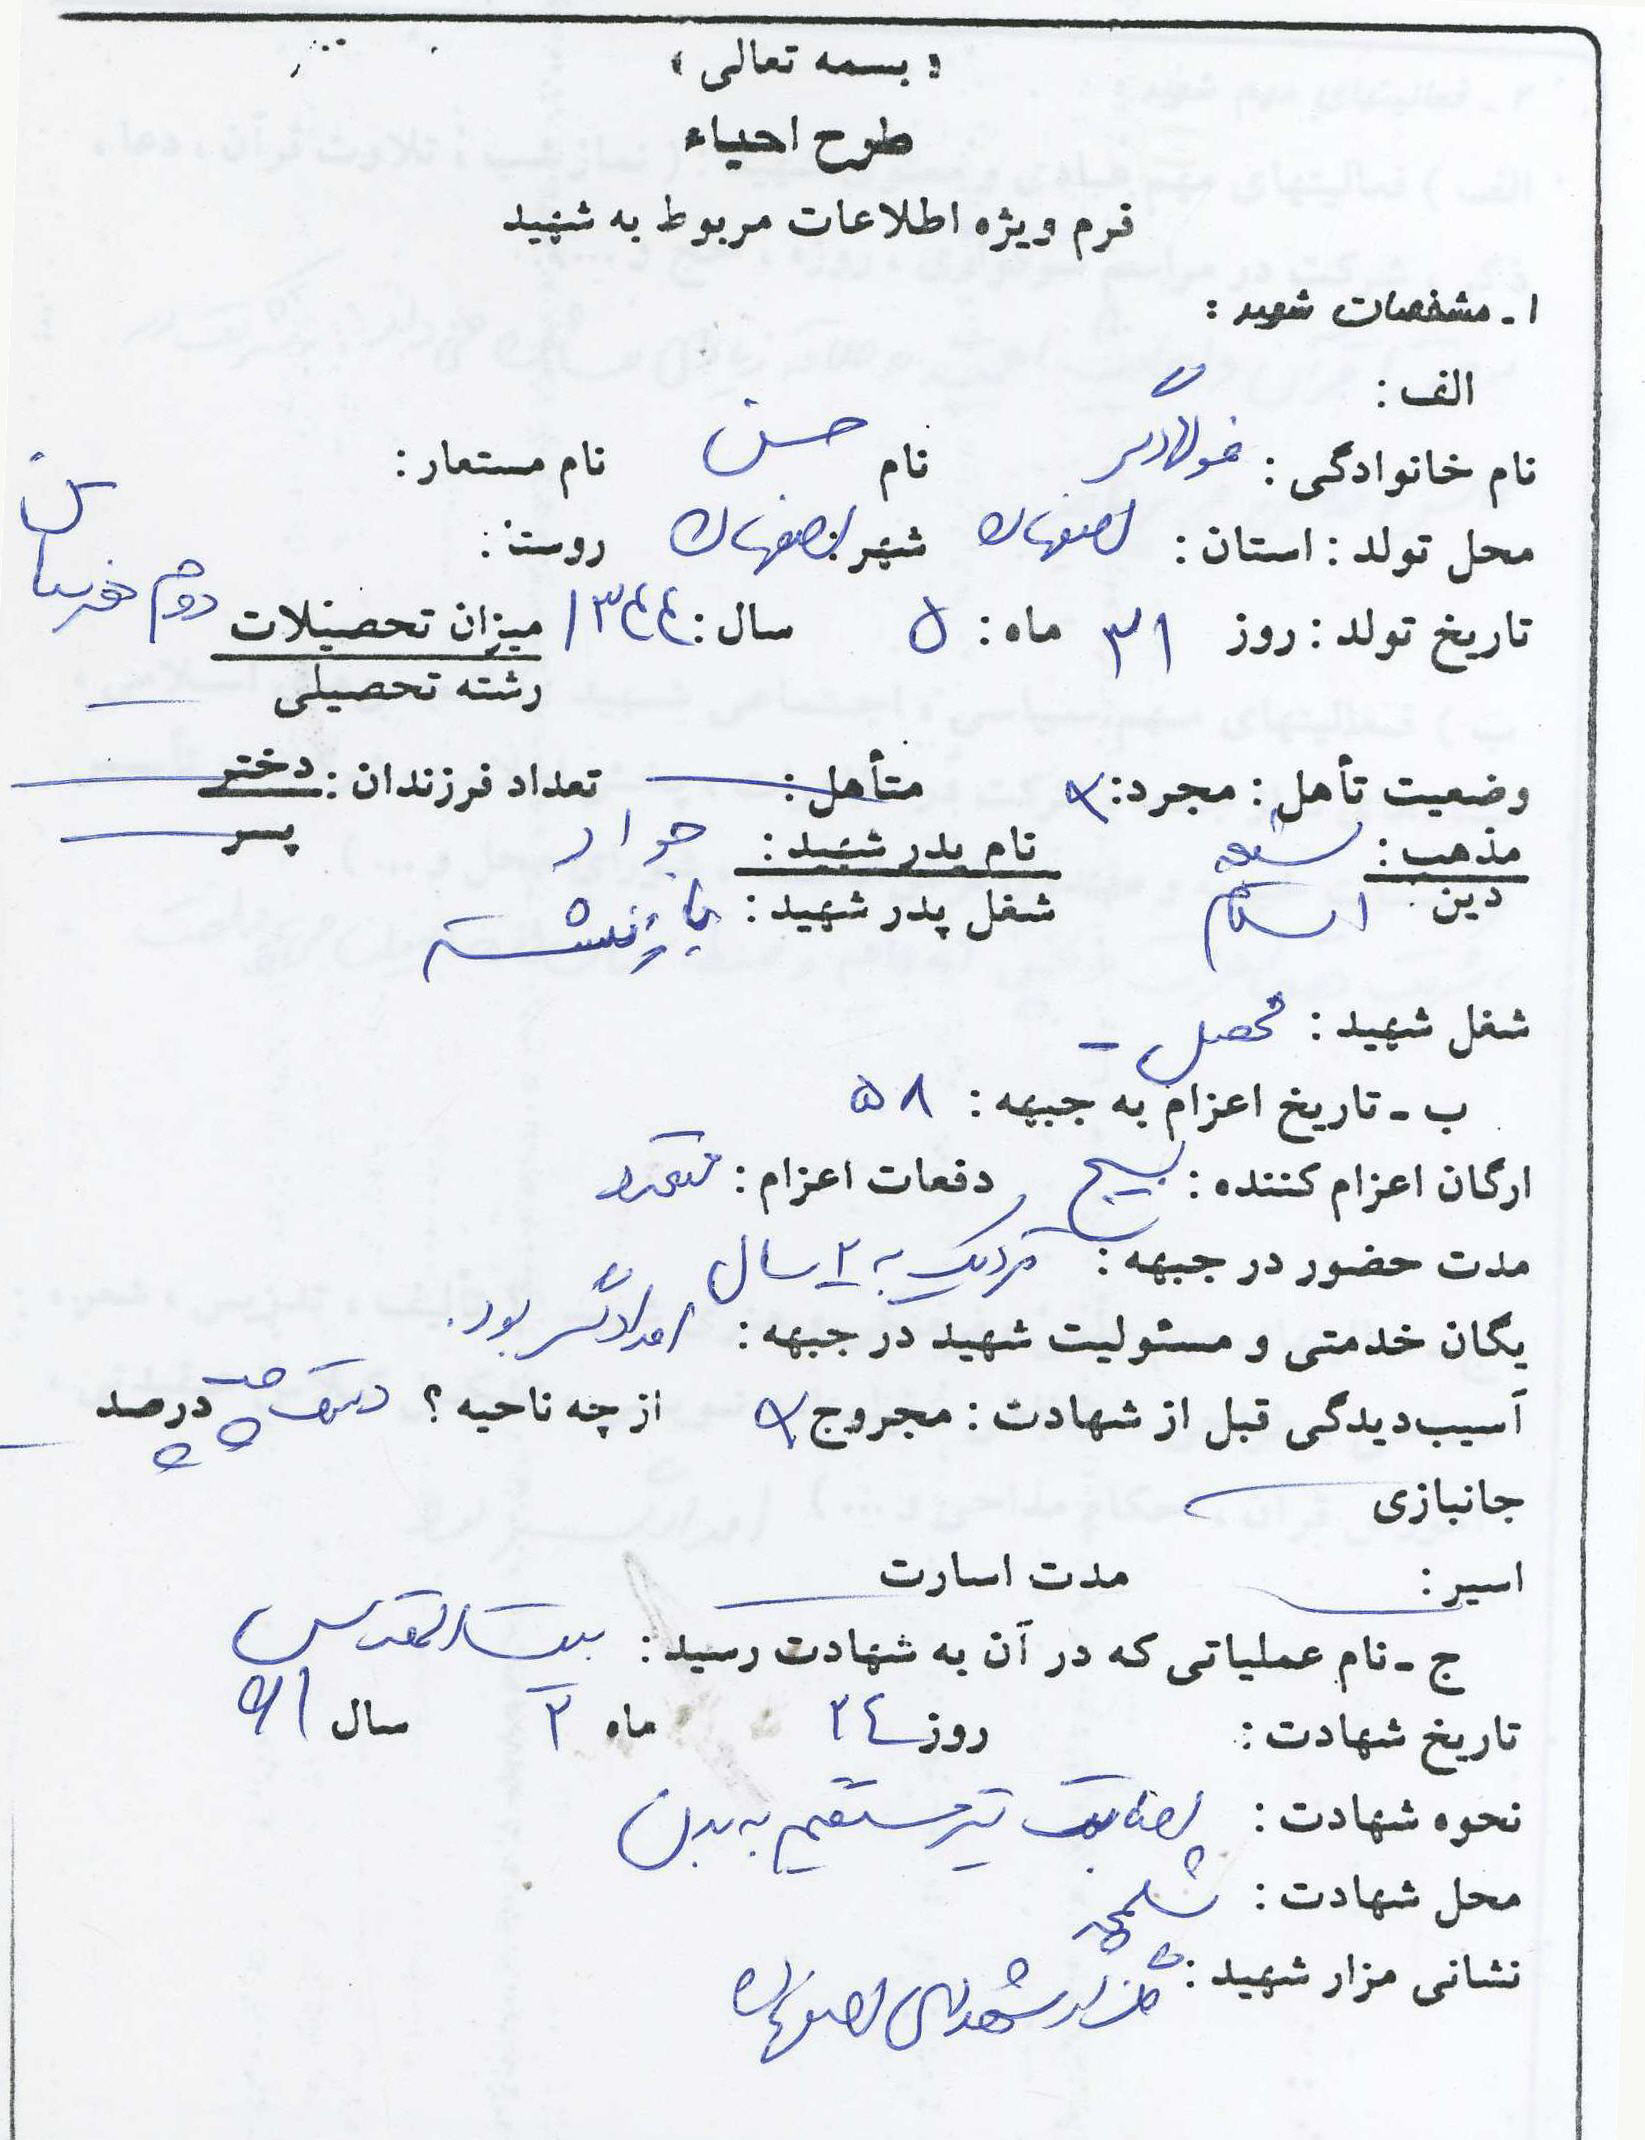 « بسمه تعالی »
طرح احیاء
فرم ویژه اطلاعات مربوط به شهید
۱ـ مشخصات شهید :
الف :
نام خانوادگی : فولادگر نام حسن نام مستعار :
محل تولد : استان : اصفهان شهر : اصفهان روستا :
تاریخ تولد : روز ۳۱ ماه : ۵ سال : ۱۳۴۴ میزان تحصیلات دوم دبیرستان
رشته تحصیلی —
وضعیت تأهل : مجرد : × متأهل : — تعداد فرزندان : دختر —
پسر —
مذهب : شیعه نام پدر شهید : جواد
دین اسلام شغل پدر شهید : بازنشسته
شغل شهید : محصل –
ب ـ تاریخ اعزام به جبهه : ۵۸
ارگان اعزام کننده : بسیج دفعات اعزام : متعدد
مدت حضور در جبهه : نزدیک به ۲ سال
یگان خدمتی و مسئولیت شهید در جبهه : امدادگر بود.
آسیب‌دیدگی قبل از شهادت : مجروح × از چه ناحیه ؟ درصد
جانبازی —
اسیر : — مدت اسارت —
ج ـ نام عملیاتی که در آن به شهادت رسید : بیت المقدس
تاریخ شهادت : روز ۲۴ ماه ۲ سال ۶۱
نحوه شهادت : اصابت تیر مستقیم به بدن
محل شهادت : شلمچه
نشانی مزار شهید : گلزار شهدای اصفهان